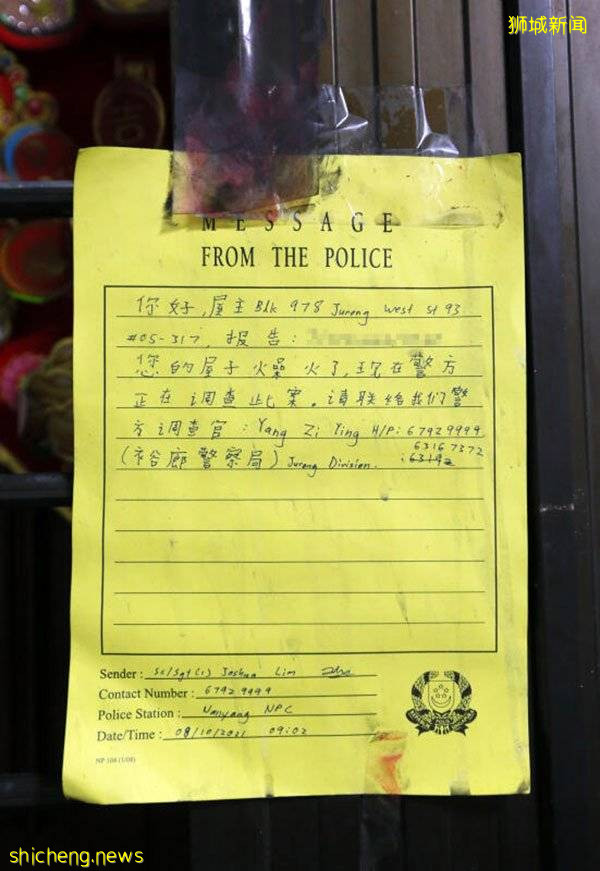 狮城新闻
MESSAGE
FROM THE POLICE
你好,屋主 Blk 978 Jurong West St 93
#05-317, 报告:
您的屋子燥火了,现在警方
正在调查此案。请联络我们警
方调查官: Yang Zi Ying H/P: 67929999
63167372
(裕廊警察局) Jurong Division.
Sender: Sc/Sgt(1) Joshua Lim
Contact Number: 67929999
Police Station: Nanyang NPC
Date/Time: 08/10/2021 09:02
NP 108 (1/08)
shicheng.news